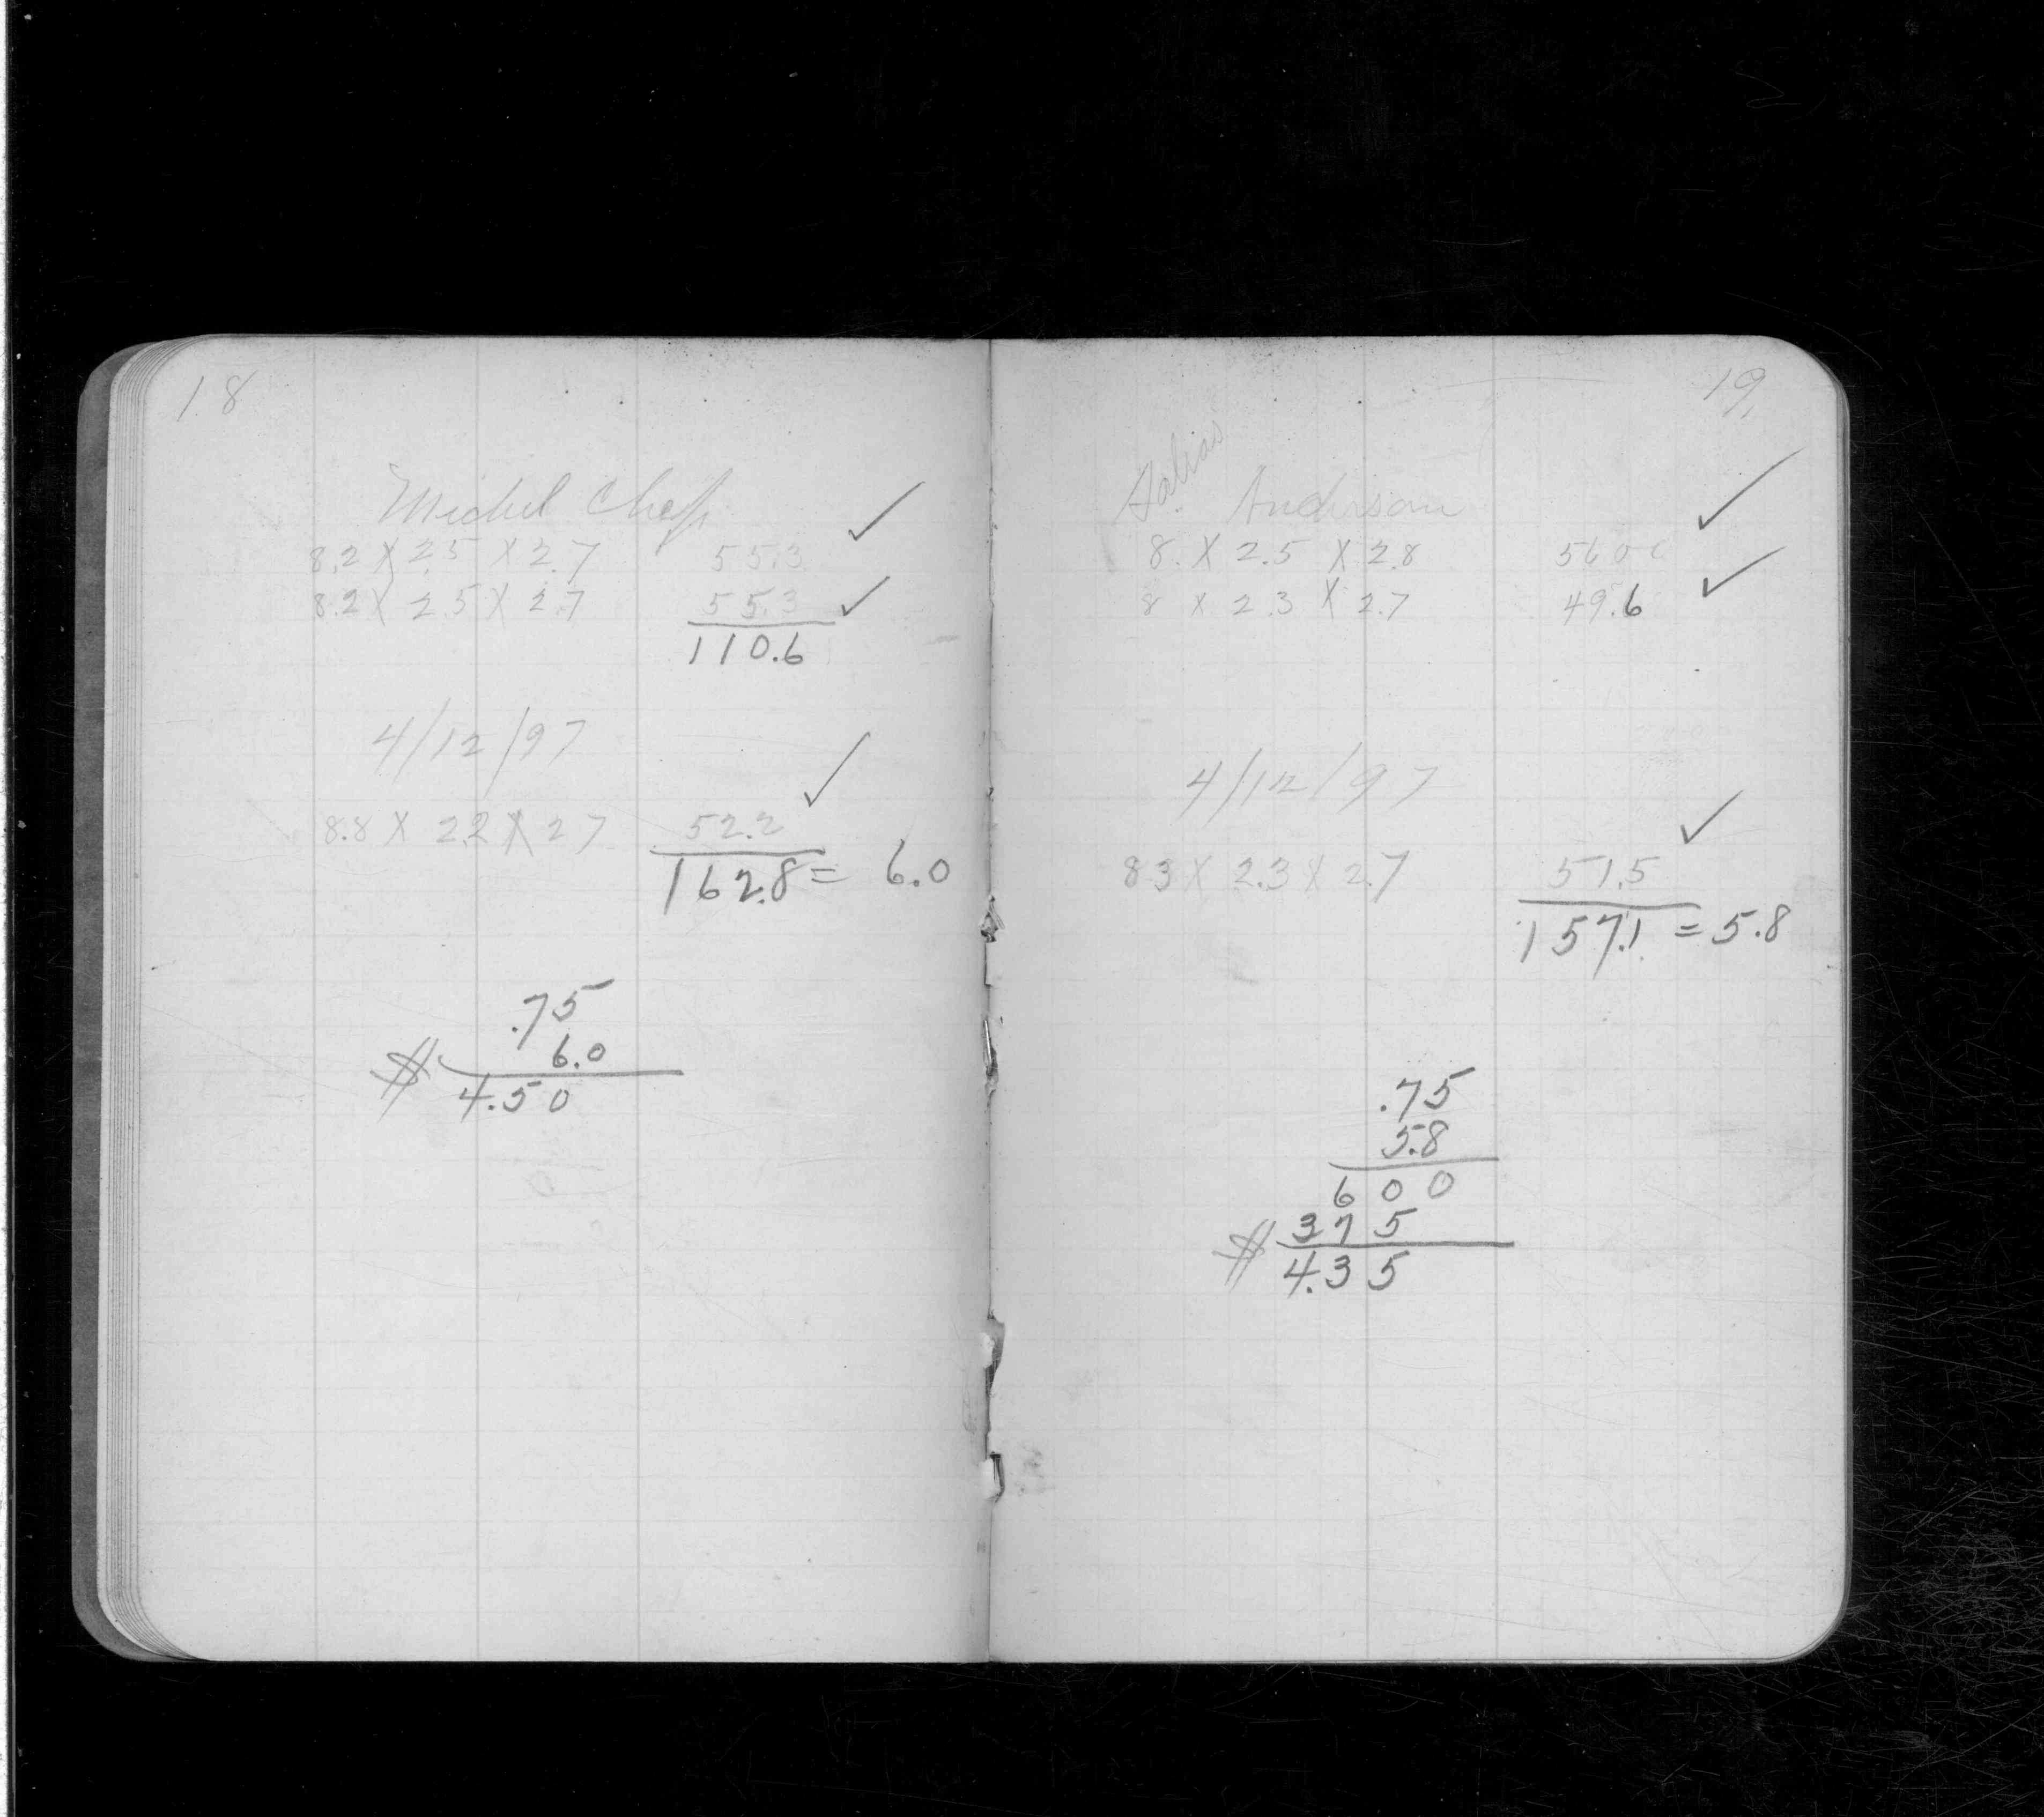 18
Michel Chap
8.2 X 2.5 X 2.7 55.3 ✓
8.2 X 2.5 X 2.7 55.3 ✓
110.6
4/12/97
8.8 X 2.2 X 2 7 52.2 ✓
162.8 = 6.0
.75
6.0
$ 4.50
19,
Anderson
8. X 2.5 X 2.8 560 ✓
8 X 2.3 X 2.7 49.6 ✓
4/12/97
83 X 2.3 X 2.7 51.5 ✓
157.1 = 5.8
.75
5.8
6 0 0
3 7 5
$ 4.3 5